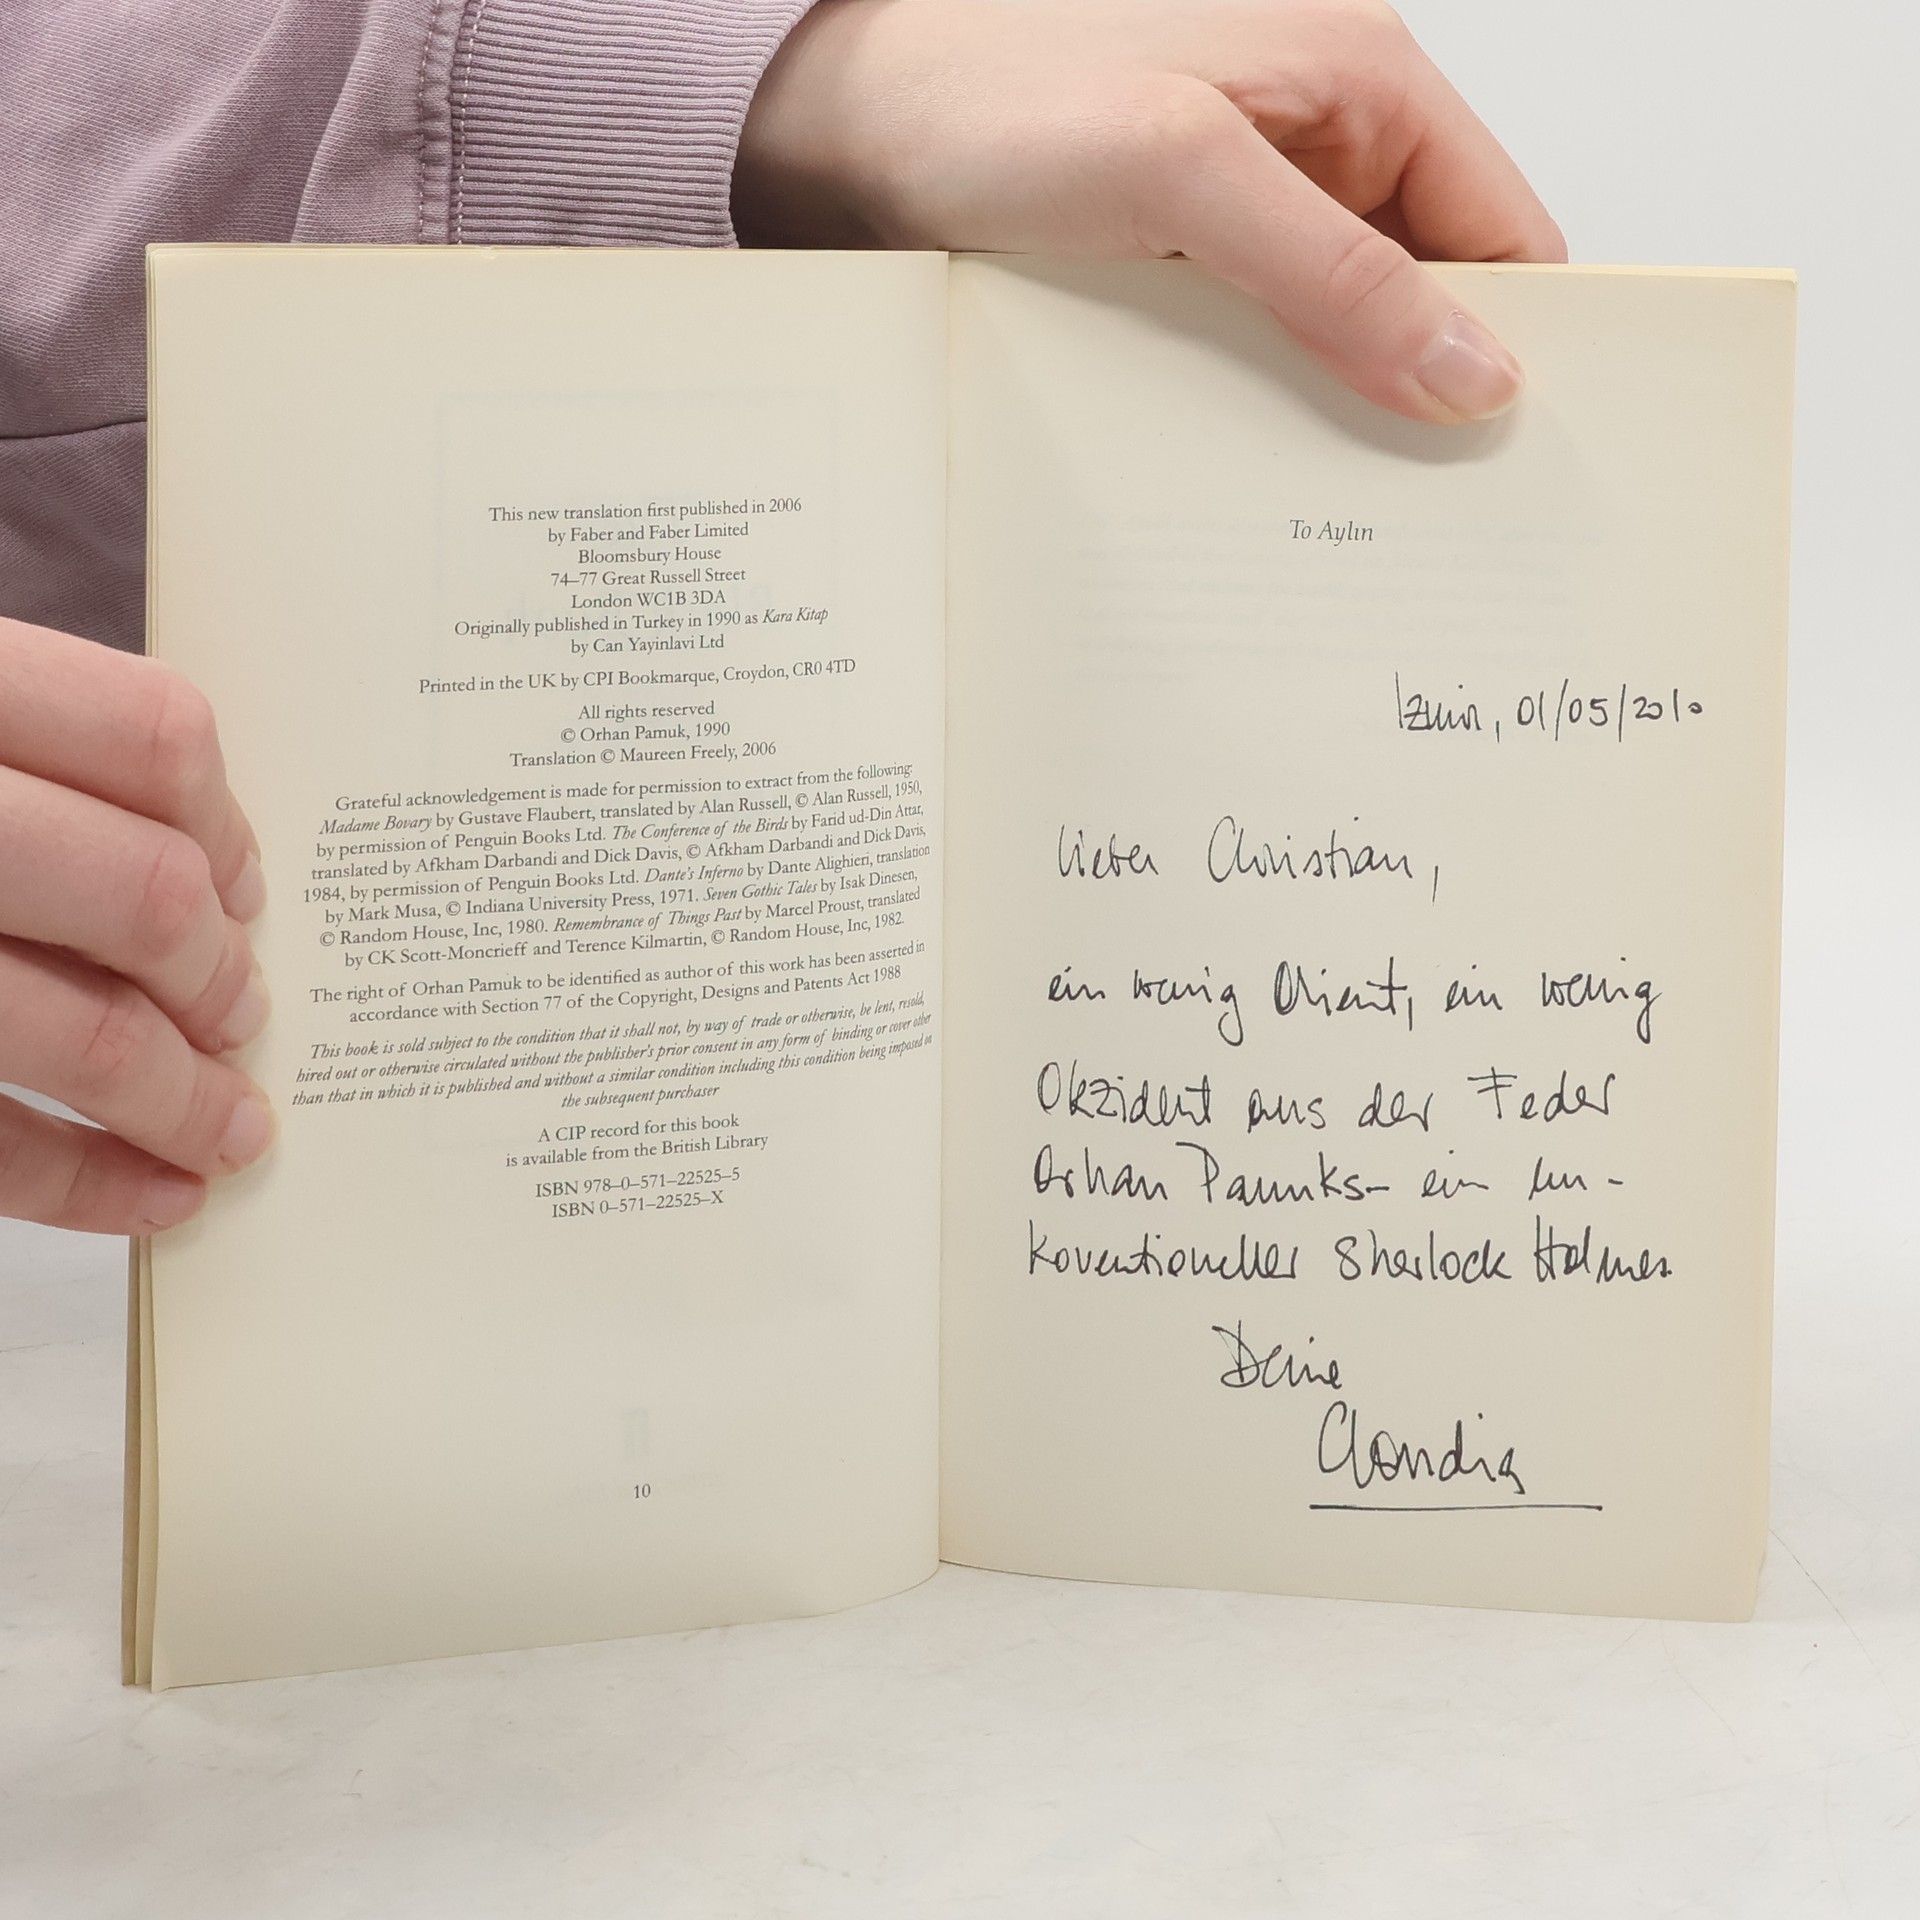 This new translation first published in 2006
by Faber and Faber Limited
Bloomsbury House
74–77 Great Russell Street
London WC1B 3DA
Originally published in Turkey in 1990 as Kara Kitap
by Can Yayinlavi Ltd
Printed in the UK by CPI Bookmarque, Croydon, CR0 4TD
All rights reserved
© Orhan Pamuk, 1990
Translation © Maureen Freely, 2006
Grateful acknowledgement is made for permission to extract from the following:
Madame Bovary by Gustave Flaubert, translated by Alan Russell, © Alan Russell, 1950,
by permission of Penguin Books Ltd. The Conference of the Birds by Farid ud-Din Attar,
translated by Afkham Darbandi and Dick Davis, © Afkham Darbandi and Dick Davis,
1984, by permission of Penguin Books Ltd. Dante's Inferno by Dante Alighieri, translation
by Mark Musa, © Indiana University Press, 1971. Seven Gothic Tales by Isak Dinesen,
© Random House, Inc, 1980. Remembrance of Things Past by Marcel Proust, translated
by CK Scott-Moncrieff and Terence Kilmartin, © Random House, Inc, 1982.
The right of Orhan Pamuk to be identified as author of this work has been asserted in
accordance with Section 77 of the Copyright, Designs and Patents Act 1988
This book is sold subject to the condition that it shall not, by way of trade or otherwise, be lent, resold,
hired out or otherwise circulated without the publisher's prior consent in any form of binding or cover other
than that in which it is published and without a similar condition including this condition being imposed on
the subsequent purchaser
A CIP record for this book
is available from the British Library
ISBN 978–0–571–22525–5
ISBN 0–571–22525–X
10
To Aylın
Izmir, 01/05/2010
lieber Christian,
ein wenig Orient, ein wenig
Okzident aus der Feder
Orhan Pamuks – ein un-
koventioneller Sherlock Holmes.
Deine
Claudia